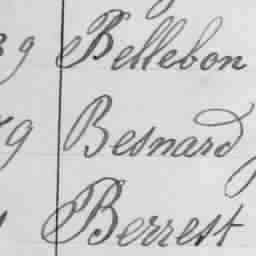 39 Bellebon
9 Besnard
Berrest